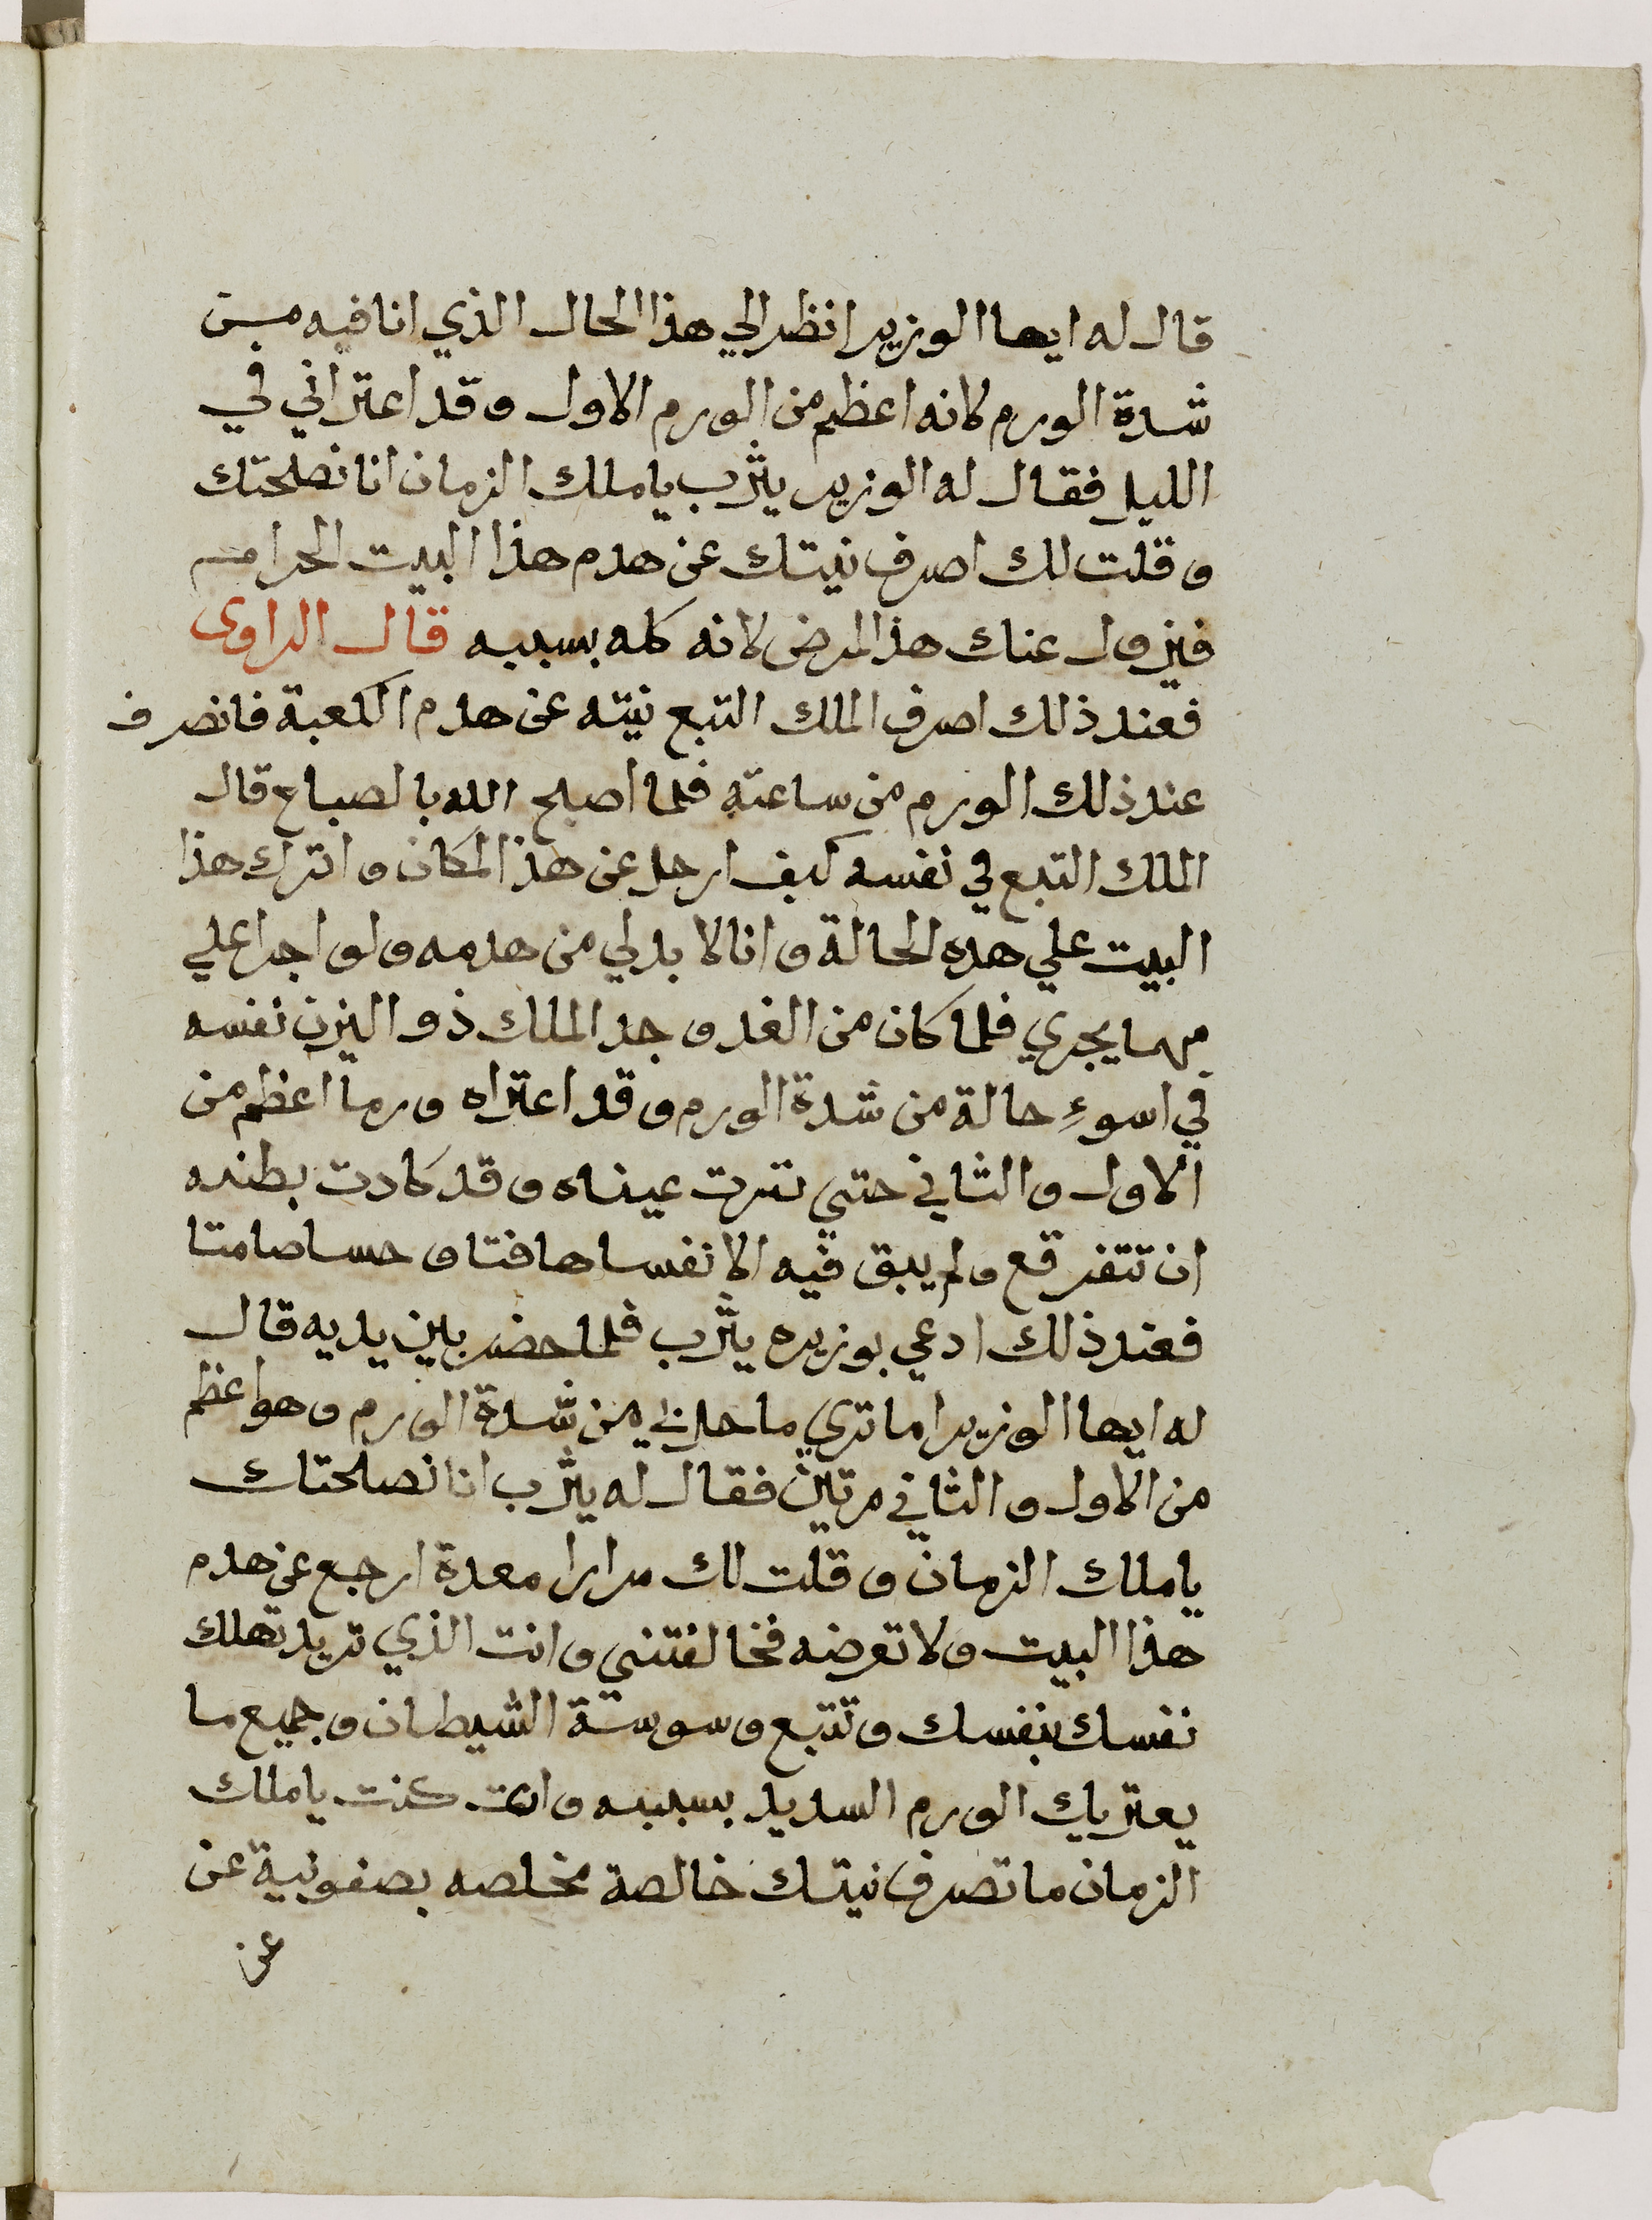 قال له ايها الوزير انظر الي هذا الحال الذي انا فيه من
شدة الورم لانه اعظم من الورم الاول وقد اعتراني في
الليل فقال له الوزير يثرب يا ملك الزمان انا نصلحتك
وقلت لك اصرف نيتك عن هدم هذا البيت الحرام
فيزول عنك هذا المرض لانه كله بسببه قال الراوى
فعند ذلك اصرف الملك التبع نيته عن هدم الكعبة فانصرف
عند ذلك الورم من ساعته فلما اصبح الله بالصباح قال
الملك التبع في نفسه كيف ارحل عن هذا المكان واترك هذا
البيت علي هده الحالة وانا لا بد لي من هدمه ولو اجرا علي
مهما يجري فلما كان من الغد وجد الملك ذو اليزن نفسه
في اسوءِ حالة من شدة الورم وقد اعتراه ورما اعظم من
الاول والثاني حتي نترت عيناه وقد كادت بطنه
ان تتفرقع ولم يبق فيه الا نفسا هافتا وحسا صامتا
فعند ذلك ادعي بوزيره يثرب فلما حضر بين يديه قال
له ايها الوزير اما تري ما حل بي من شدة الورم وهو اعظم
من الاول والثاني مرتين فقال له يثرب انا نصلحتك
يا ملك الزمان وقلت لك مرارا معدة ارجع عن هدم
هذا البيت ولا تعرضه فخالفتني وانت الذي تريد تهلك
نفسك بنفسك وتتبع وسوسة الشيطان وجميع ما
يعتريك الورم السديد بسببه وان كنت يا ملك
الزمان ما تصرف نيتك خالصة مخلصه بصفونية عن
عن